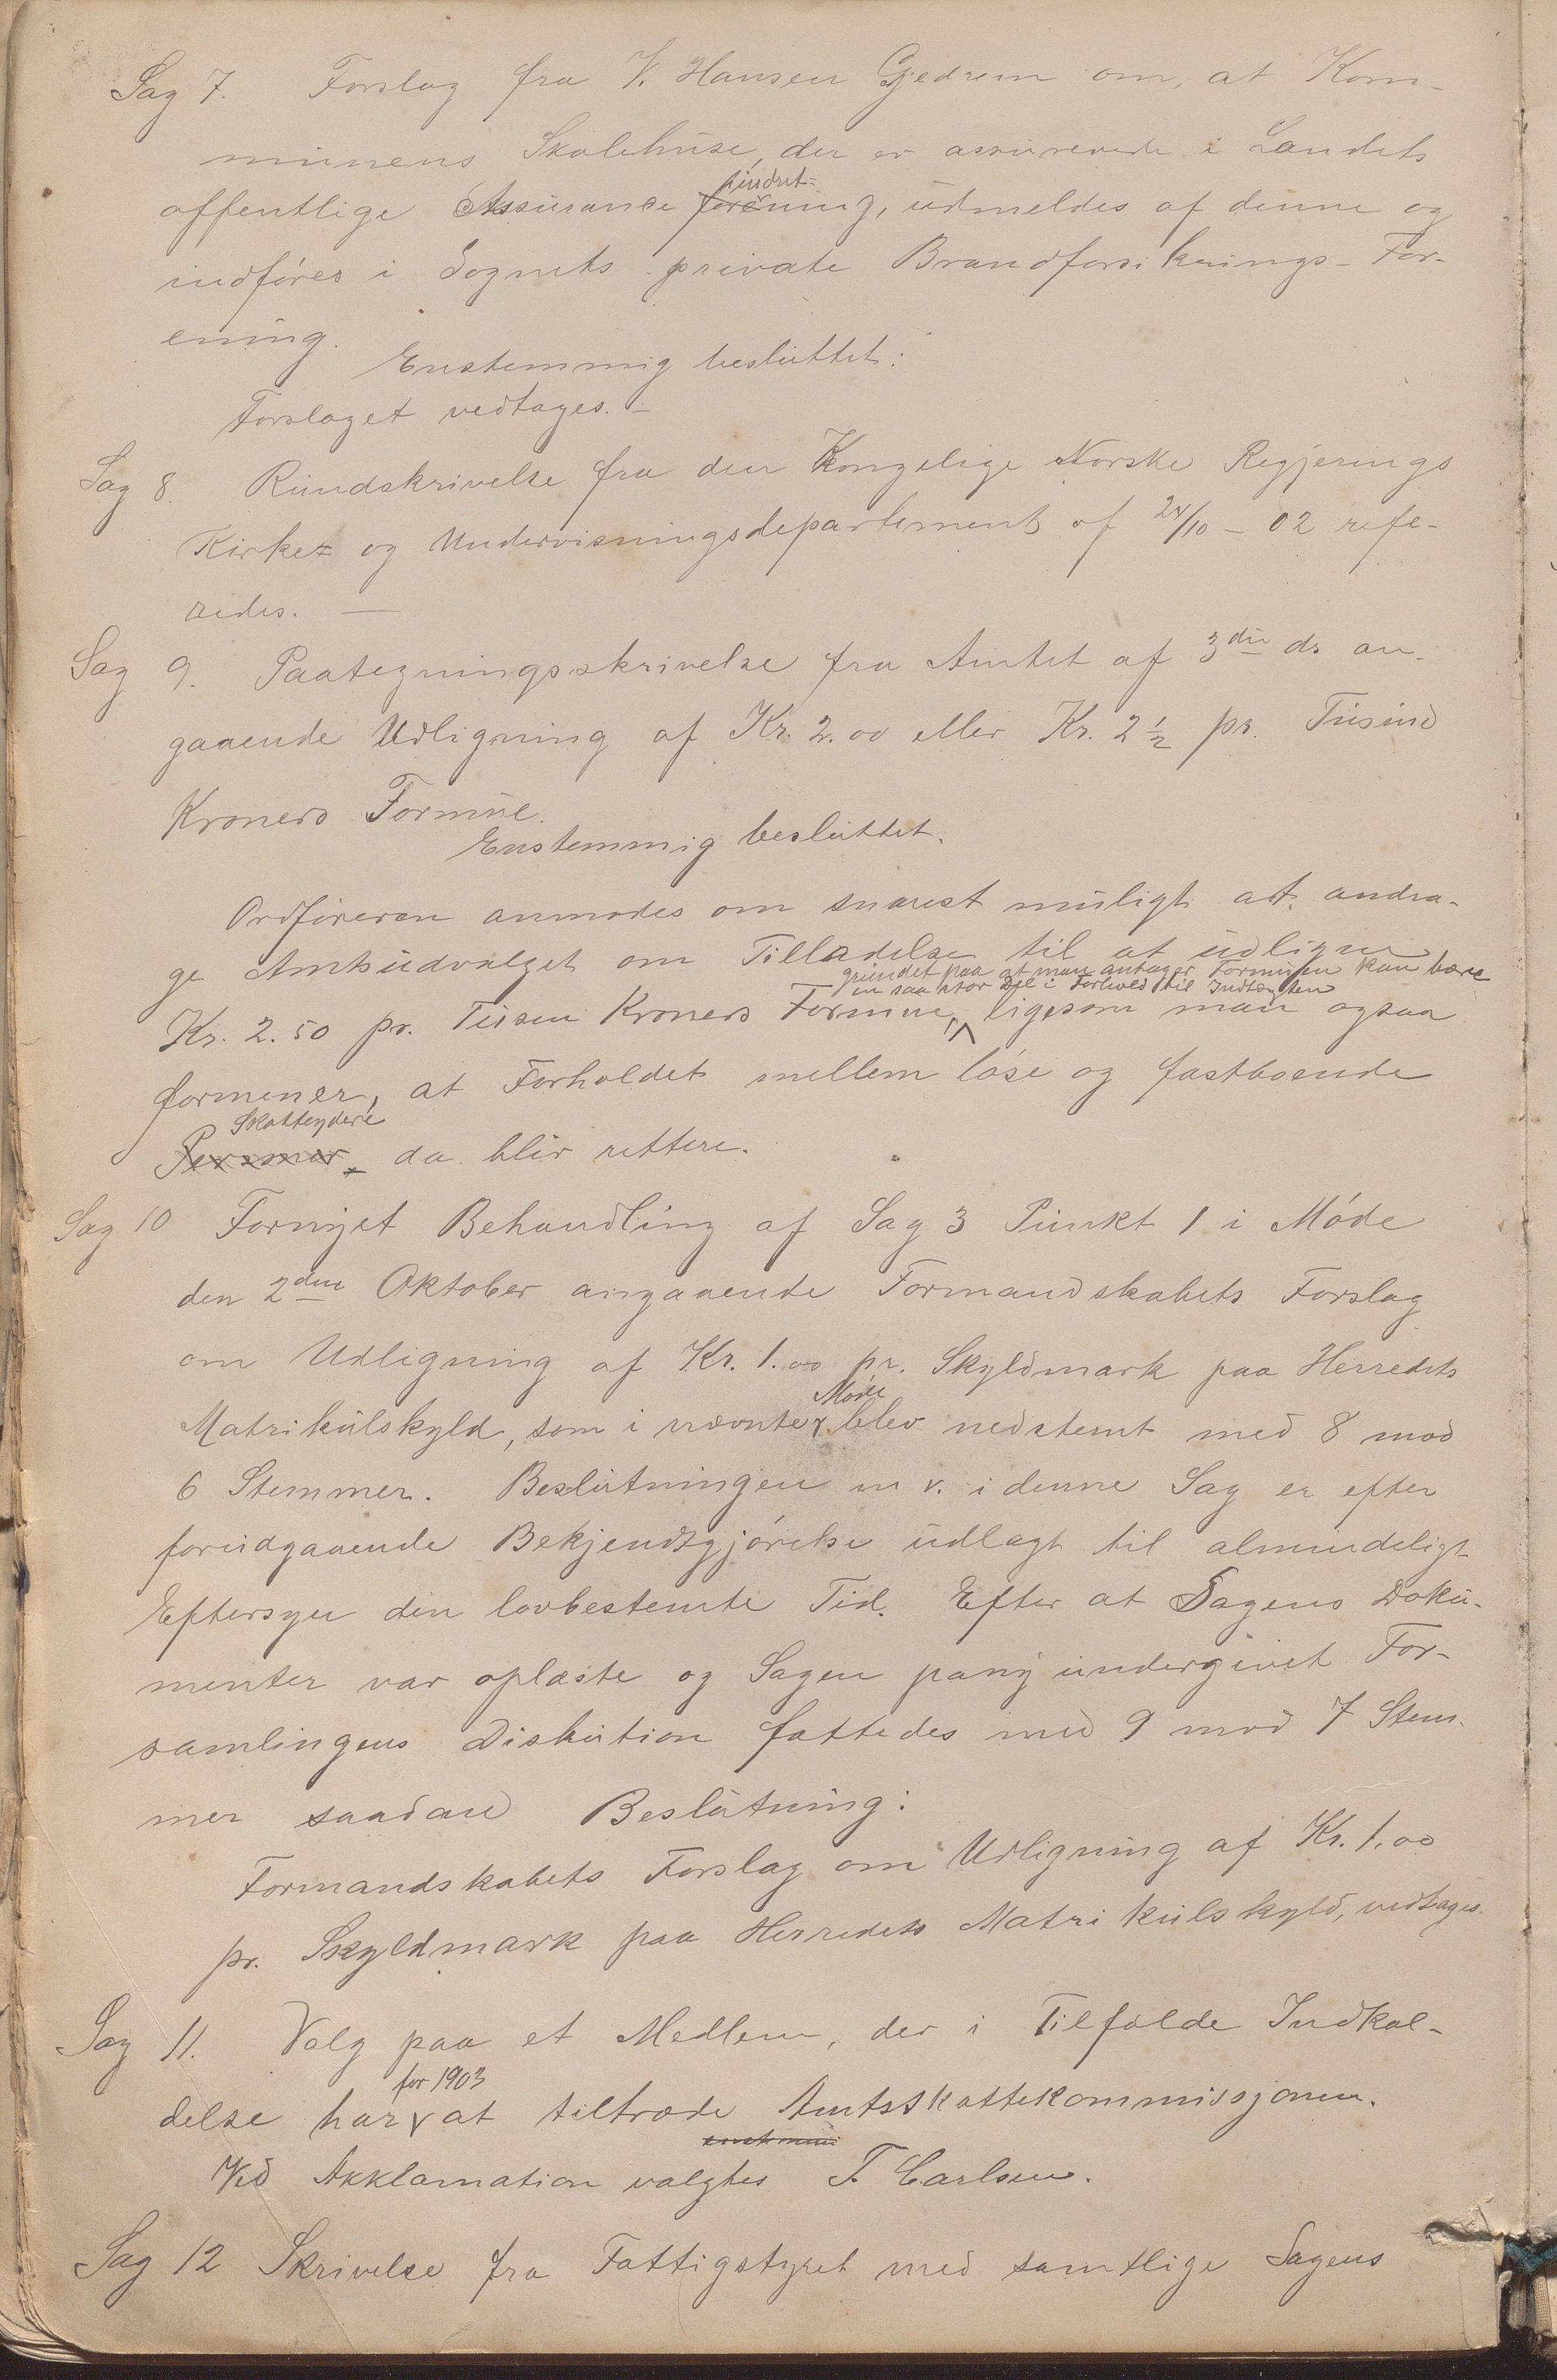 Sag 7. Forslag fra V. Hansen Gjedrem om, at Kom-
munens Skolehuse, der er assurerede i Landets
indret-
offentlige Assurance forening, udmeldes af denne og
indføres i Sognets private Brandforsikrings-For-
ening.
Enstemmig besluttet:
Forslaget vedtages. -
Sag 8. Rundskrivelse fra den Kongelige Norske Regjerings
Kirke= og Undervisningsdepartement af 24/10 - 02 refe-
redes. —
Sag 9. Paategningsskrivelse fra Amtet af 3die ds an-
gaaende Udligning af Kr. 2.00 eller Kr. 2 1/2 pr. Tusind
Kroners Formue.
Enstemmig besluttet.
Ordføreren anmodes om snarest muligt at andra-
ge Amtsudvalget om Tilladelse til at udligne
grundet paa at man antager Formuen kan bære
en saa stor Del i Forhold til Indtægten
Kr. 2.50 pr. Tusen Kroners Formue, ligesom man ogsaa
formener, at Forholdet mellem løse og fastboende
Skatteydere
Personer da blir rettere.
Sag 10 Fornyet Behandling af Sag 3 Punkt 1 i Møde
den 2den Oktober angaaende Formandskabets Forslag
om Udligning af Kr. 1.00 pr. Skyldmark paa Herredets
Møde
Matrikulskyld, som i nævnte blev nedstemt med 8 mod
6 Stemmer. Beslutningen m v. i denne Sag er efter
forudgaaende Bekjendtgjørelse udlagt til almindeligt
Eftersyn den lovbestemte Tid. Efter at Sagens Doku-
menter var oplæste og Sagen pany undergivet For-
samlingens Diskution fattedes med 9 mod 7 Stem-
mer saadan Beslutning:
Formandskabets Forslag om Udligning af Kr. 1.00
pr. Skyldmark paa Herredets Matrikulskyld, vedtages.
Sag 11. Valg paa et Medlem, der i Tilfælde Indkal-
for 1903
delse har at tiltræde Amtsskattekommissjonen.
Ved Akklamation valgtes T. Carlsen.
Sag 12 Skrivelse fra Fattigstyret med samtlige Sagens